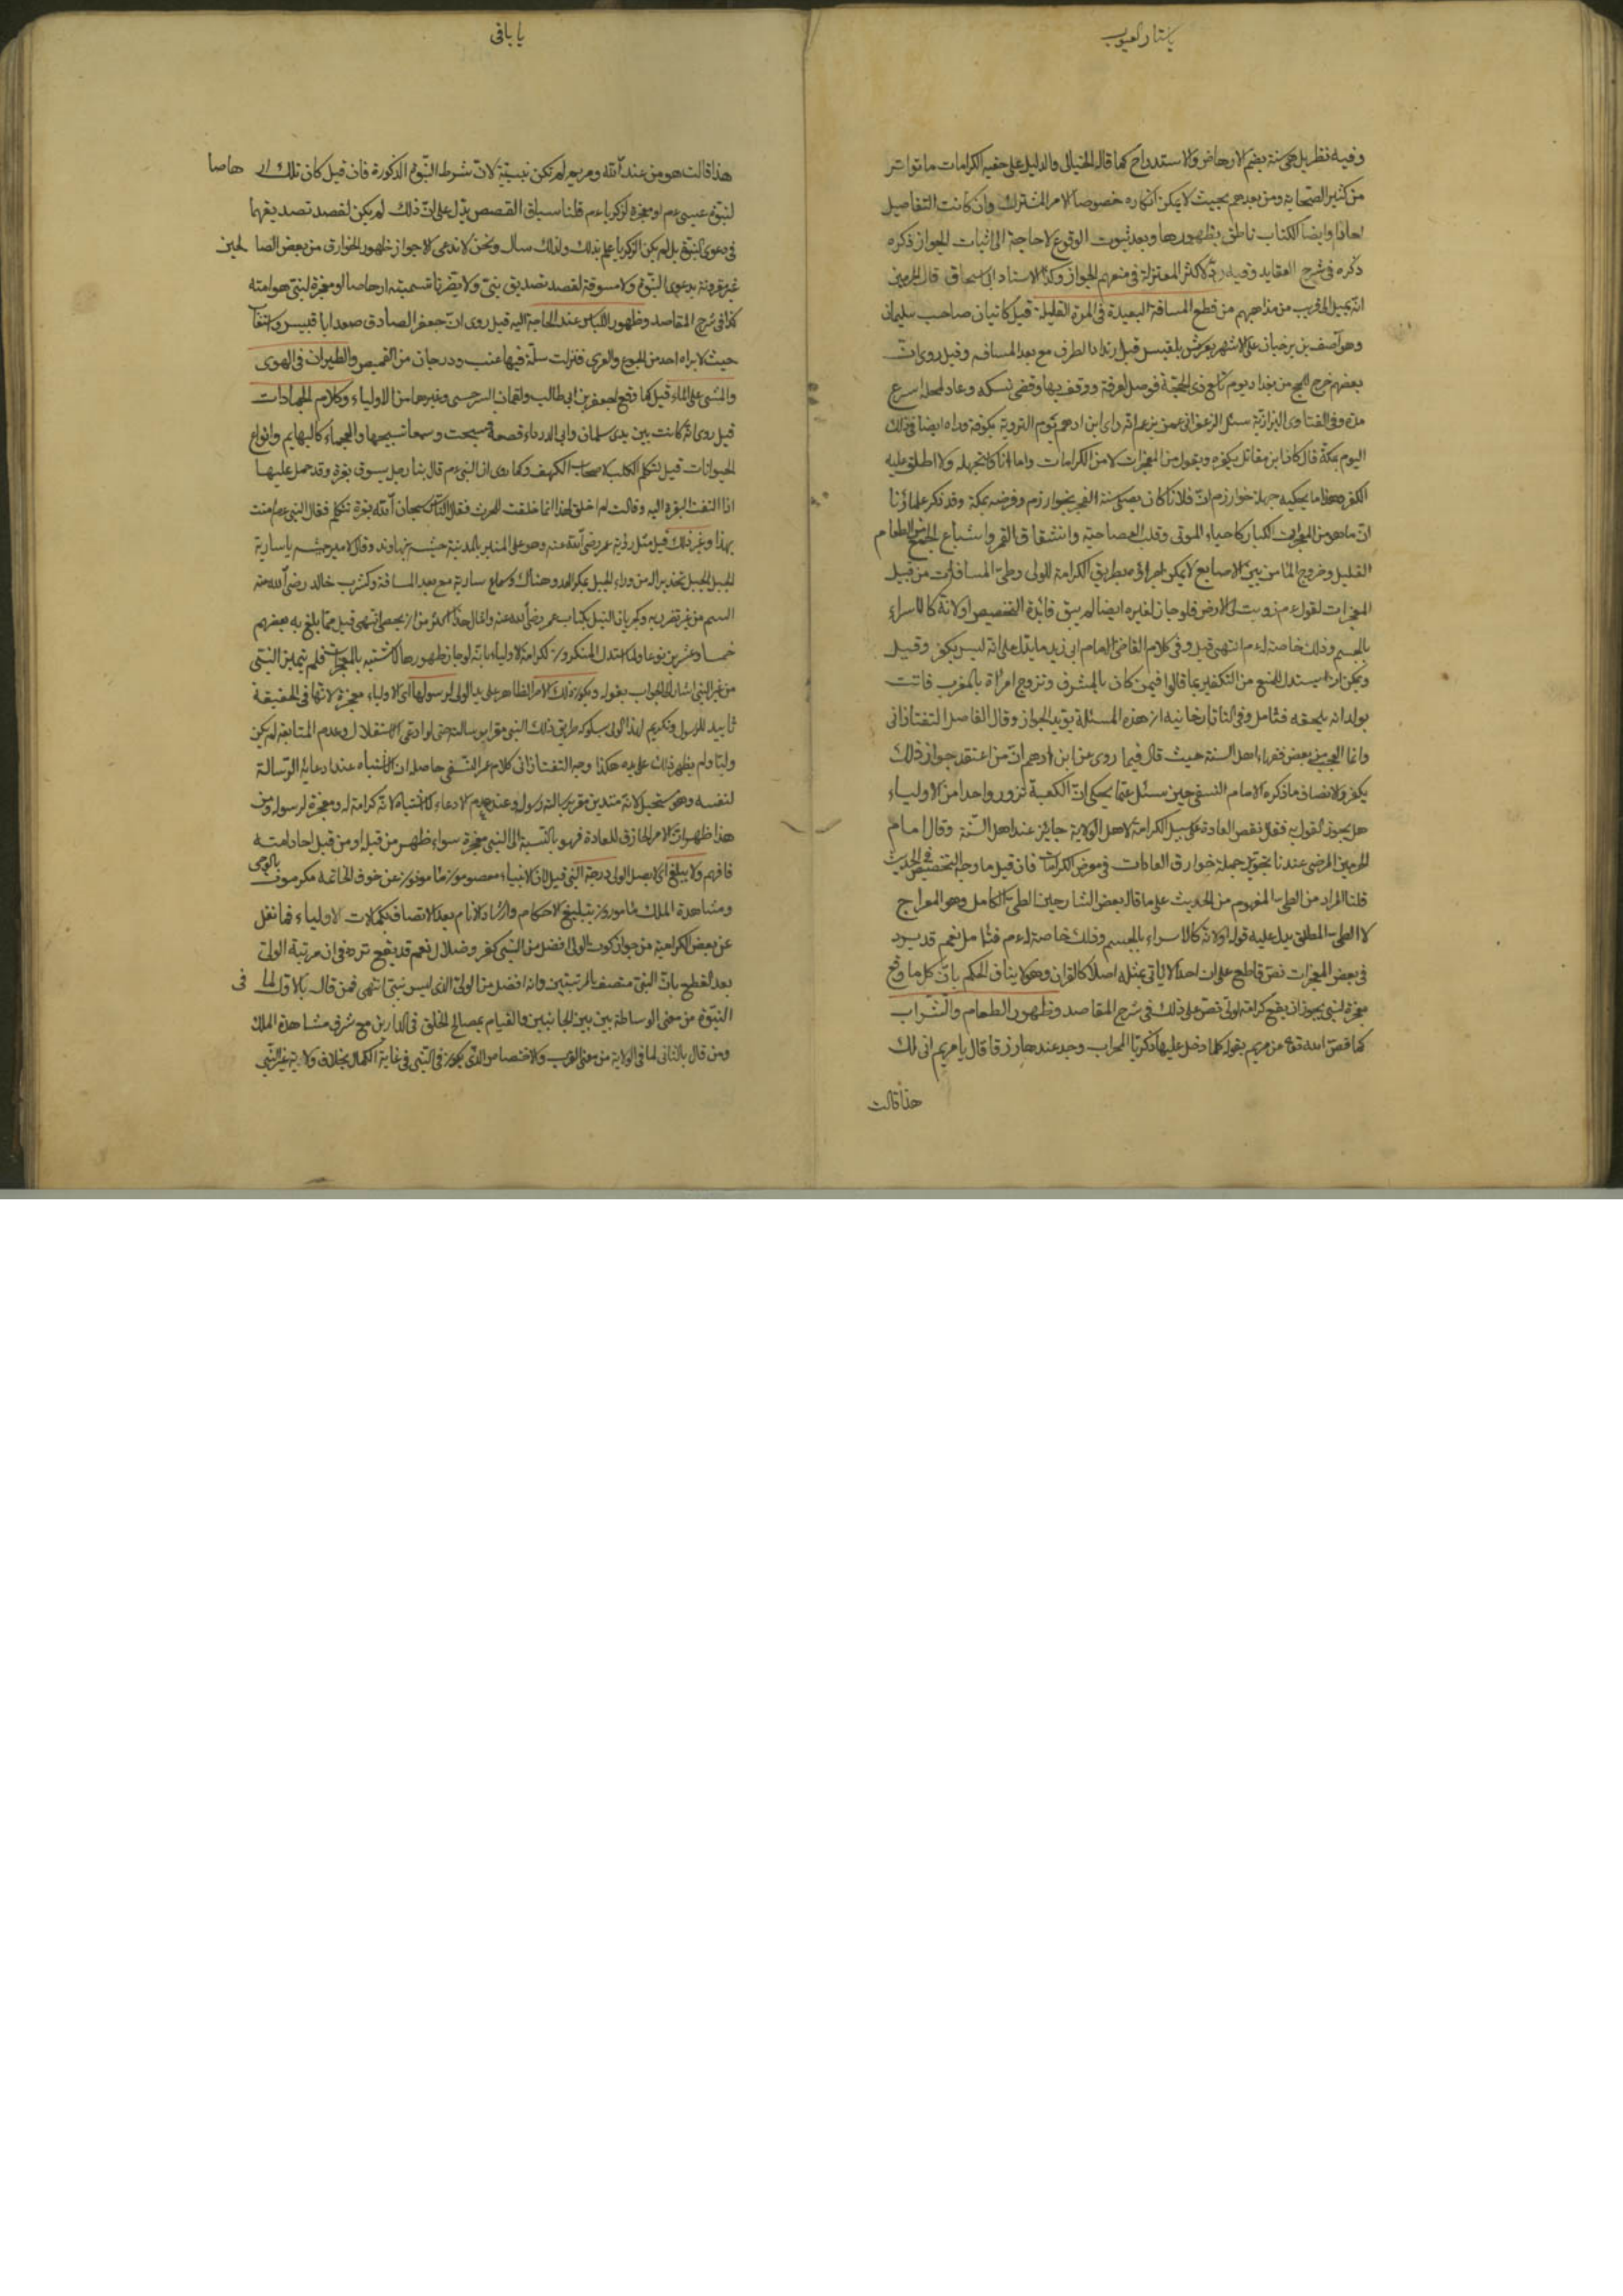 يا ستار العيوب
وفيه نظر بل هي ستة بضم الارهاص والاستدراج كما قاله الخيالي والدليل على حقية الكرامات ما تواتر
من كثير الصحابة ومن بعدهم بحيث لا يمكن انكاره خصوصا الامر المشترك وان كانت التفاصيل
احادا وايضا الكتاب ناطق بظهورها وبعد ثبوت الوقوع لا حاجة الى اثبات الجواز ذكره
ذكره في شرح العقايد وفيه رد لاكثر المعتزلة في منعهم الجواز وكذا الاستاد ابي اسحاق قال امام الحرمين
انه يميل الى قريب من مذاهبهم من قطع المسافة البعيدة في المدة القليلة قيل كاتيان صاحب سليمان
وهو آصف بن برخيا على الاشهر بعرش بلقيس قبل ارتداد الطرف مع بعد المسافة وقيل روى ان
بعضهم خرج للحج من بغداد يوم تاسع ذى الحجة فوصل لعرفة ووقف بها وقضى نسكه وعاد لمحله اسرع
مدة وفي الفتاوى البزازية سئل الزعفراني عمن يزعم انه راى ابن ادهم يوم التروية بكوفة وراه ايضا في ذلك
اليوم بمكة قال كان ابن مقاتل يكفره ويقول من المعجزات لا من الكرامات واما انا كلا تجهله ولا اطلق عليه
الكفر وهذا ما يحكيه جهلة خوارزم ان فلانا كان يصلى سنة الفجر بخوارزم وفرضه بمكة وقد ذكر علماؤنا
ان ما هو من المعجزات الكبار كاحياء الموتى وقلب العصا حية وانشقاق القمر واشباع الجمع من الطعام
القليل وخروج الما من بين الاصابع لا يمكن اجراؤه بطريق الكرامة للولى وطى المسافة من قبيل
المعجزات لقوله عم زويت لي الارض فلو جاز لغيره ايضا لم يبق فائدة التخصيص او لانه كالاسراء
بالجسم وذلك خاصة له عم انتهى قيل وفي كلام القاضى الامام ابي زيد ما يدل على انه ليس بكفر وقيل
ويمكن ان يستدل للمنع من التكفير بما قالوا فيمن كان بالمشرق وتزوج امراة بالمغرب فاتت
بولد انه يلحقه فتامل وفي التاتارخانيه ان هذه المسئلة يؤيد الجواز وقال الفاضل التفتازاني
وانما العجب من بعض فقهاء اهل السنة حيث قال فيما روى عن ابن ادهم ان من اعتقد جواز ذلك
يكفر والانصاف ما ذكره الامام النسفي حين سئل عما يحكى ان الكعبة تزور واحدا من الاولياء
هل يجوز القول به فقال نقض العادة على سبيل الكرامة لاهل الولاية جايز عند اهل السنة وقال امام
الحرمين المرضى عندنا تجويز جملة خوارق العادات في معرض الكرامات فان قيل ما وجه التخصيص في الحديث
قلنا المراد من الطى المفهوم من الحديث على ما قال بعض الشارحين الطى الكامل وهو المعراج
لا الطى المطلق يدل عليه قوله او لانه كالاسراء بالجسم وذلك خاصة له عم فتامل نعم قد يرد
في بعض المعجزات نص قاطع على ان احدا لا ياتي بمثله اصلا كالقران وهو لا ينافي الحكم بان كل ما وقع
معجزة لنبي يجوز ان يقع كرامة لولى نص على ذلك في شرح المقاصد وظهور الطعام والشراب
كما قص الله تع عن مريم بقوله كلما دخل عليها زكريا المحراب وجد عندها رزقا قال يا مريم انى لك
هذا قالت
يا باقى
هذا قالت هو من عند الله ومريم لم تكن نبية لان شرط النبوة الذكورة فان قيل كان تلك ار هاصا
لنبوة عيسى عم او معجزة لزكريا عم قلنا سياق القصص يدل على ان ذلك لم يكن لقصد تصديقهما
في دعوى النبوة بل لم يكن لزكريا علم بذلك ولذلك سال ونحن لا ندعى الا جواز ظهور الخوارق من بعض الصا لحين
غير مقرونة بدعوى النبوة ولا مسوقة لقصد تصديق نبى ولا يضرنا تسميته ارهاصا او معجزة لنبى هو امته
كذا في شرح المقاصد وظهور اللباس عند الحاجة اليه قيل روى ان جعفر الصادق صعد ابا قبيس
حيث لا يراه احد من الجوع والعرى فنزلت سلة فيها عنب ودرجان من القميص والطيران في الهوى
والمشى على الماء قيل كما وقع لجعفر بن ابي طالب ولقمان السرخسى وغيرهما من الاولياء وكلام الجمادات
قيل روى انه كانت بين يدى سلمان وابي الدرداء قصعة فسبحت وسمعا تسبيحها والعجماء كالبهايم وانواع
الحيوانات قيل كتكلم الكلب لاصحاب الكهف وكما روى ان النبي عم قال بينا رجل يسوق بقرة وقد حمل عليها
اذا التفت البقرة اليه وقالت لم اخلق لهذا انما خلقت للحرث فقال الناس سبحان الله بقرة تتكلم فقال النبي عم امنت
بهذا وغير ذلك قيل مثل رؤية عمر رضى الله عنه وهو على المنبر بالمدينة جيشه بنهاوند وقال لامير جيشه يا سارية
الجبل الجبل تحذيرا له من وراء الجبل بمكر العدو هناك وسماع سارية مع بعد المسافة وكشرب خالد رضى الله عنه
السم من غير تضرر به وكجريان النيل بكتاب عمر رضى الله عنه وامثال هذا اكثر من ان يحصى انتهى قيل مما بلغ به بعضهم
خمسا وعشرين نوعا ولما استدل المنكرون لكرامة الاولياء بانه لو جاز ظهورها لاشتبه بالمعجزات فلم يتميز النبي
من غير النبي اشار الى الجواب بقوله ويكون ذلك الامر الظاهر على يد الولى لرسولها اى الاولياء معجزة لانها في الحقيقة
تاييد للرسول وتكريم لهذا الولى بسلوكه طريق ذلك النبي مقرا برسالته حتى لو ادعى الاستقلال وعدم المتابعة لم يكن
وليا ولم يظهر ذلك على يده هكذا وجه التفتازاني كلام عمر النسفي حاصله ان الاشتباه عند ادعاية الرسالة
لنفسه وهو مستحيل لانه متدين مقر برسالة رسوله وعند عدم الادعاء لا اشتباه لانه كرامة له ومعجزة لرسوله ومن
هذا ظهر ان الامر الخارق للعادة فهو بالنسبة الى النبي معجزة سواء ظهر من قبله او من قبل احاد امته
فافهم ولا يبلغ اى لا يصل الولى درجة النبي قيل لان الانبياء معصومون مامونون عن خوف الخاتمة مكرمون بالوحى
ومشاهدة الملك مامورون بتبليغ الاحكام وارشاد الانام بعد الاتصاف بكمالات الاولياء فما نقل
عن بعض الكرامية من جواز كون الولى افضل من النبي كفر وضلال نعم قد يقع تردد في ان مرتبة الولى
بعد القطع بان النبي متصف بالمرتبتين وانه افضل من الولى الذى ليس بنبي انتهى فمن قال بالاول لما فى
النبوة من معنى الوساطة بين بين الجانبين والقيام بمصالح الخلق في الدارين مع شرف مشاهدة الملك
ومن قال بالثاني لما في الولاية من معنى القرب والاختصاص الذى يكون في النبي في غاية الكمال بخلاف ولاية غير النبي